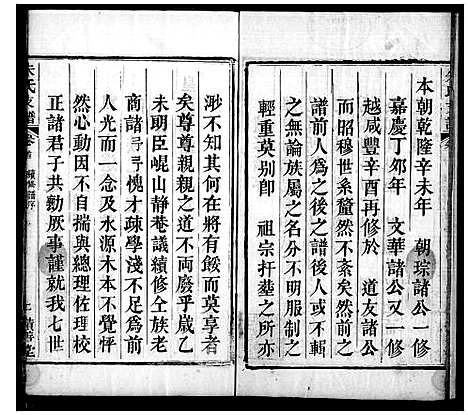 本朝乾隆辛未年　朝琮諸公一修
嘉慶丁夘年　文華諸公又一修
越咸豐辛酉再修於　道友諸公
譜前人爲之後之譜前或不輯
則四世系釐然不紊矣然前之
之無論族屬之名分不明服制之
輕重莫别卽　祖宗扞墓之所亦
渺不知其何在將有餒而莫享者
矣尊尊親親之道不两廢乎歲乙
未明臣崐山静巷議續修仝族老
商諸　愧才疎學淺不足爲前
人光而一念及水源木本不覺怦
然心動因不自揣與總理佐理校
正諸君子共勷厥事謹就我七世
朱氏支譜